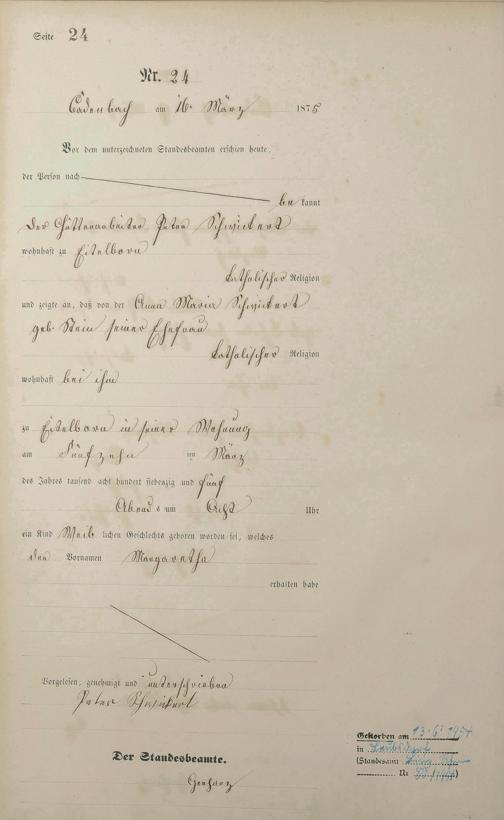 Seite 24
Nr. 24
Cadenbach am 16. März 1875
Vor dem unterzeichneten Standesbeamten erschien heute,
der Person nach
be kannt
der Hüttenarbeiter Peter Schwickert
wohnhaft zu Eitelborn
katholischer Religion
und zeigte an, daß von der Anna Maria Schwickert
geb. Stein seiner Ehefrau
katholischer Religion
wohnhaft bei ihm
zu Eitelborn in seiner Wohnung
am Fünfzehn ten März
des Jahres tausend acht hundert siebenzig und fünf
Abends um Acht Uhr
ein Kind Weib lichen Geschlechts geboren worden sei, welches
den Vornamen Margaretha
erhalten habe
Vorgelesen, genehmigt und unterschrieben
Peter Schwickert
Der Standesbeamte.
Gerharz
Gestorben am 13.6.
in
(Standesamt
Nr